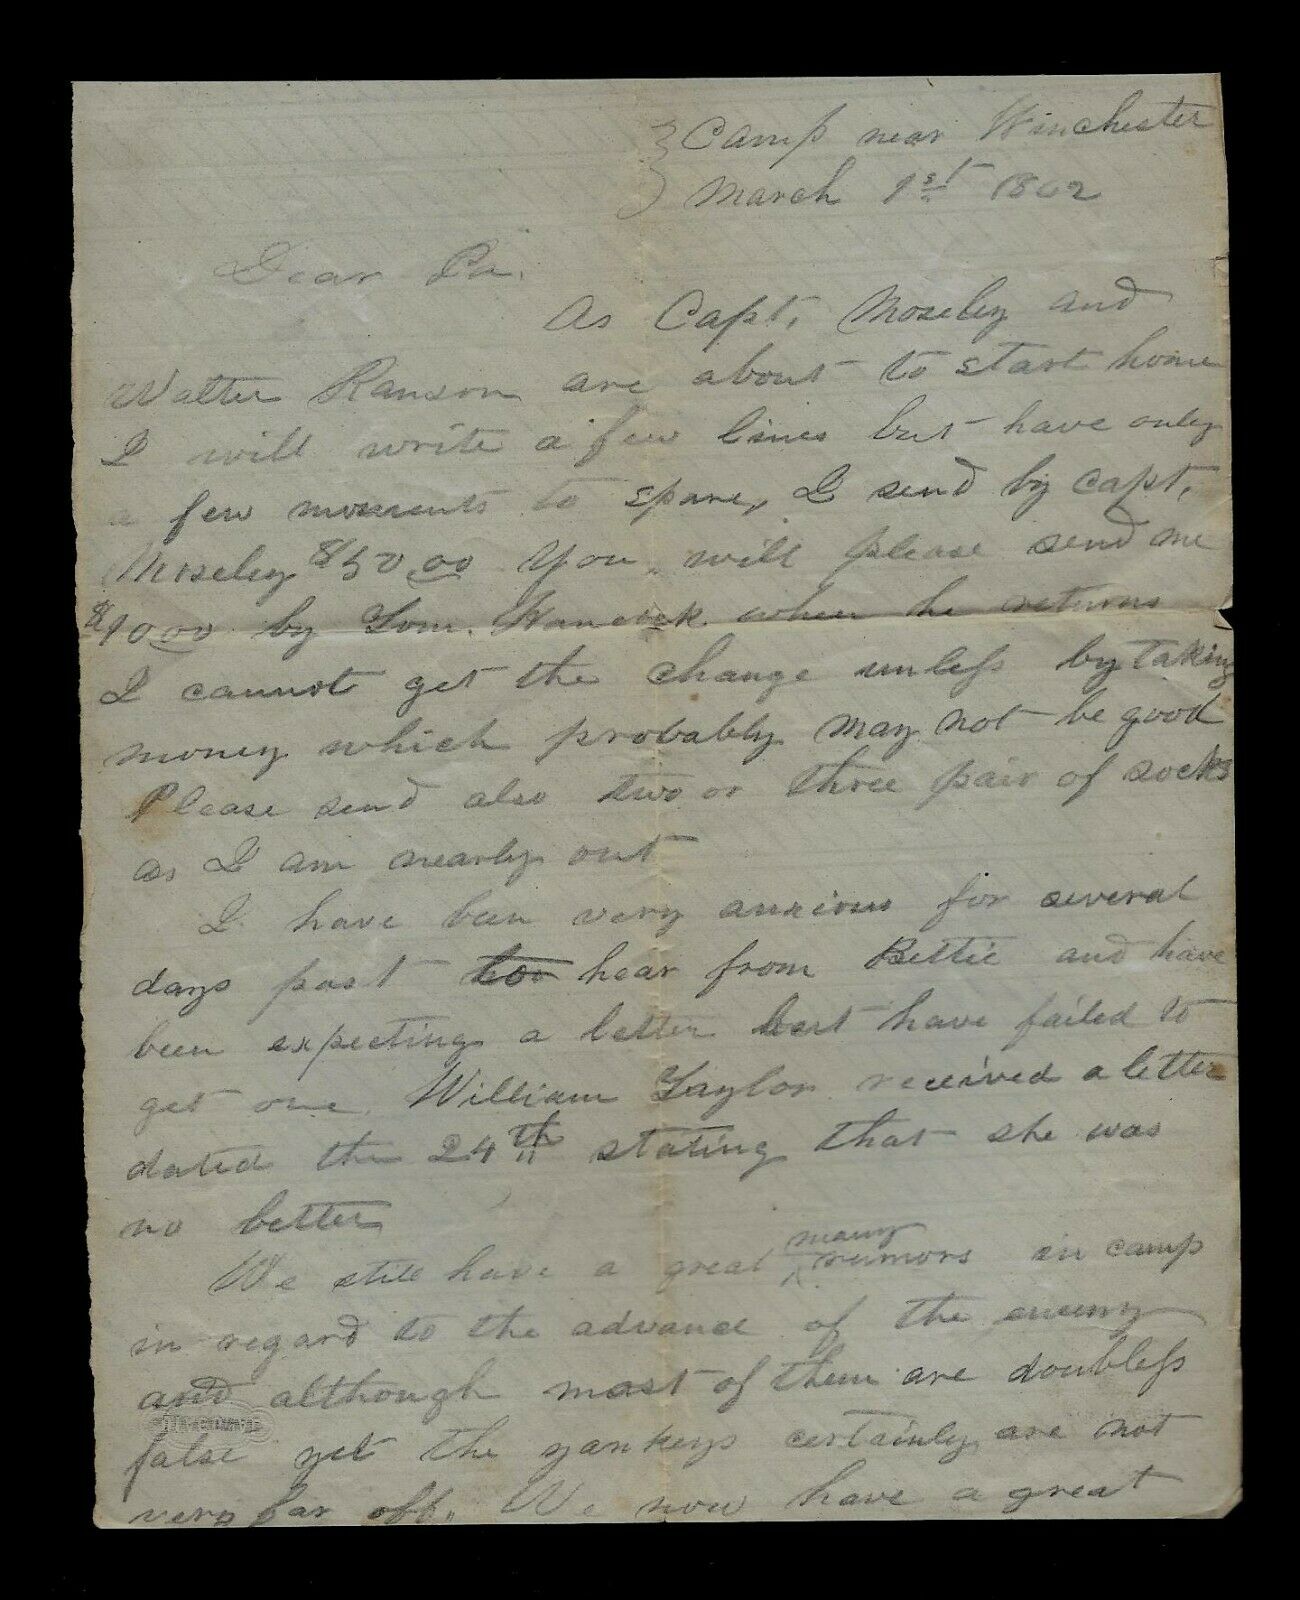 Camp near Winchester
March 1st 1862
Dear Pa.
As Capt. Moseley and
Walter Ranson are about to start home
I will write a few lines but have only
a few moments to spare, I send by Capt.
Moseley $50.00 You will please send me
$10.00 by Tom. Hancock when he returns
I cannot get the change unless by taking
money which probably may not be good
Please send also two or three pair of socks
as I am nearly out
I have been very anxious for several
days past hear from Bettie and have
been expecting a letter but have failed to
get one. William Taylor received a letter
dated the 24th stating that she was
no better
We still have a great many rumors in camp
in regard to the advance of the enemy
and although most of them are doubless
false yet the yankeys certainly are not
very far off. We now have a great